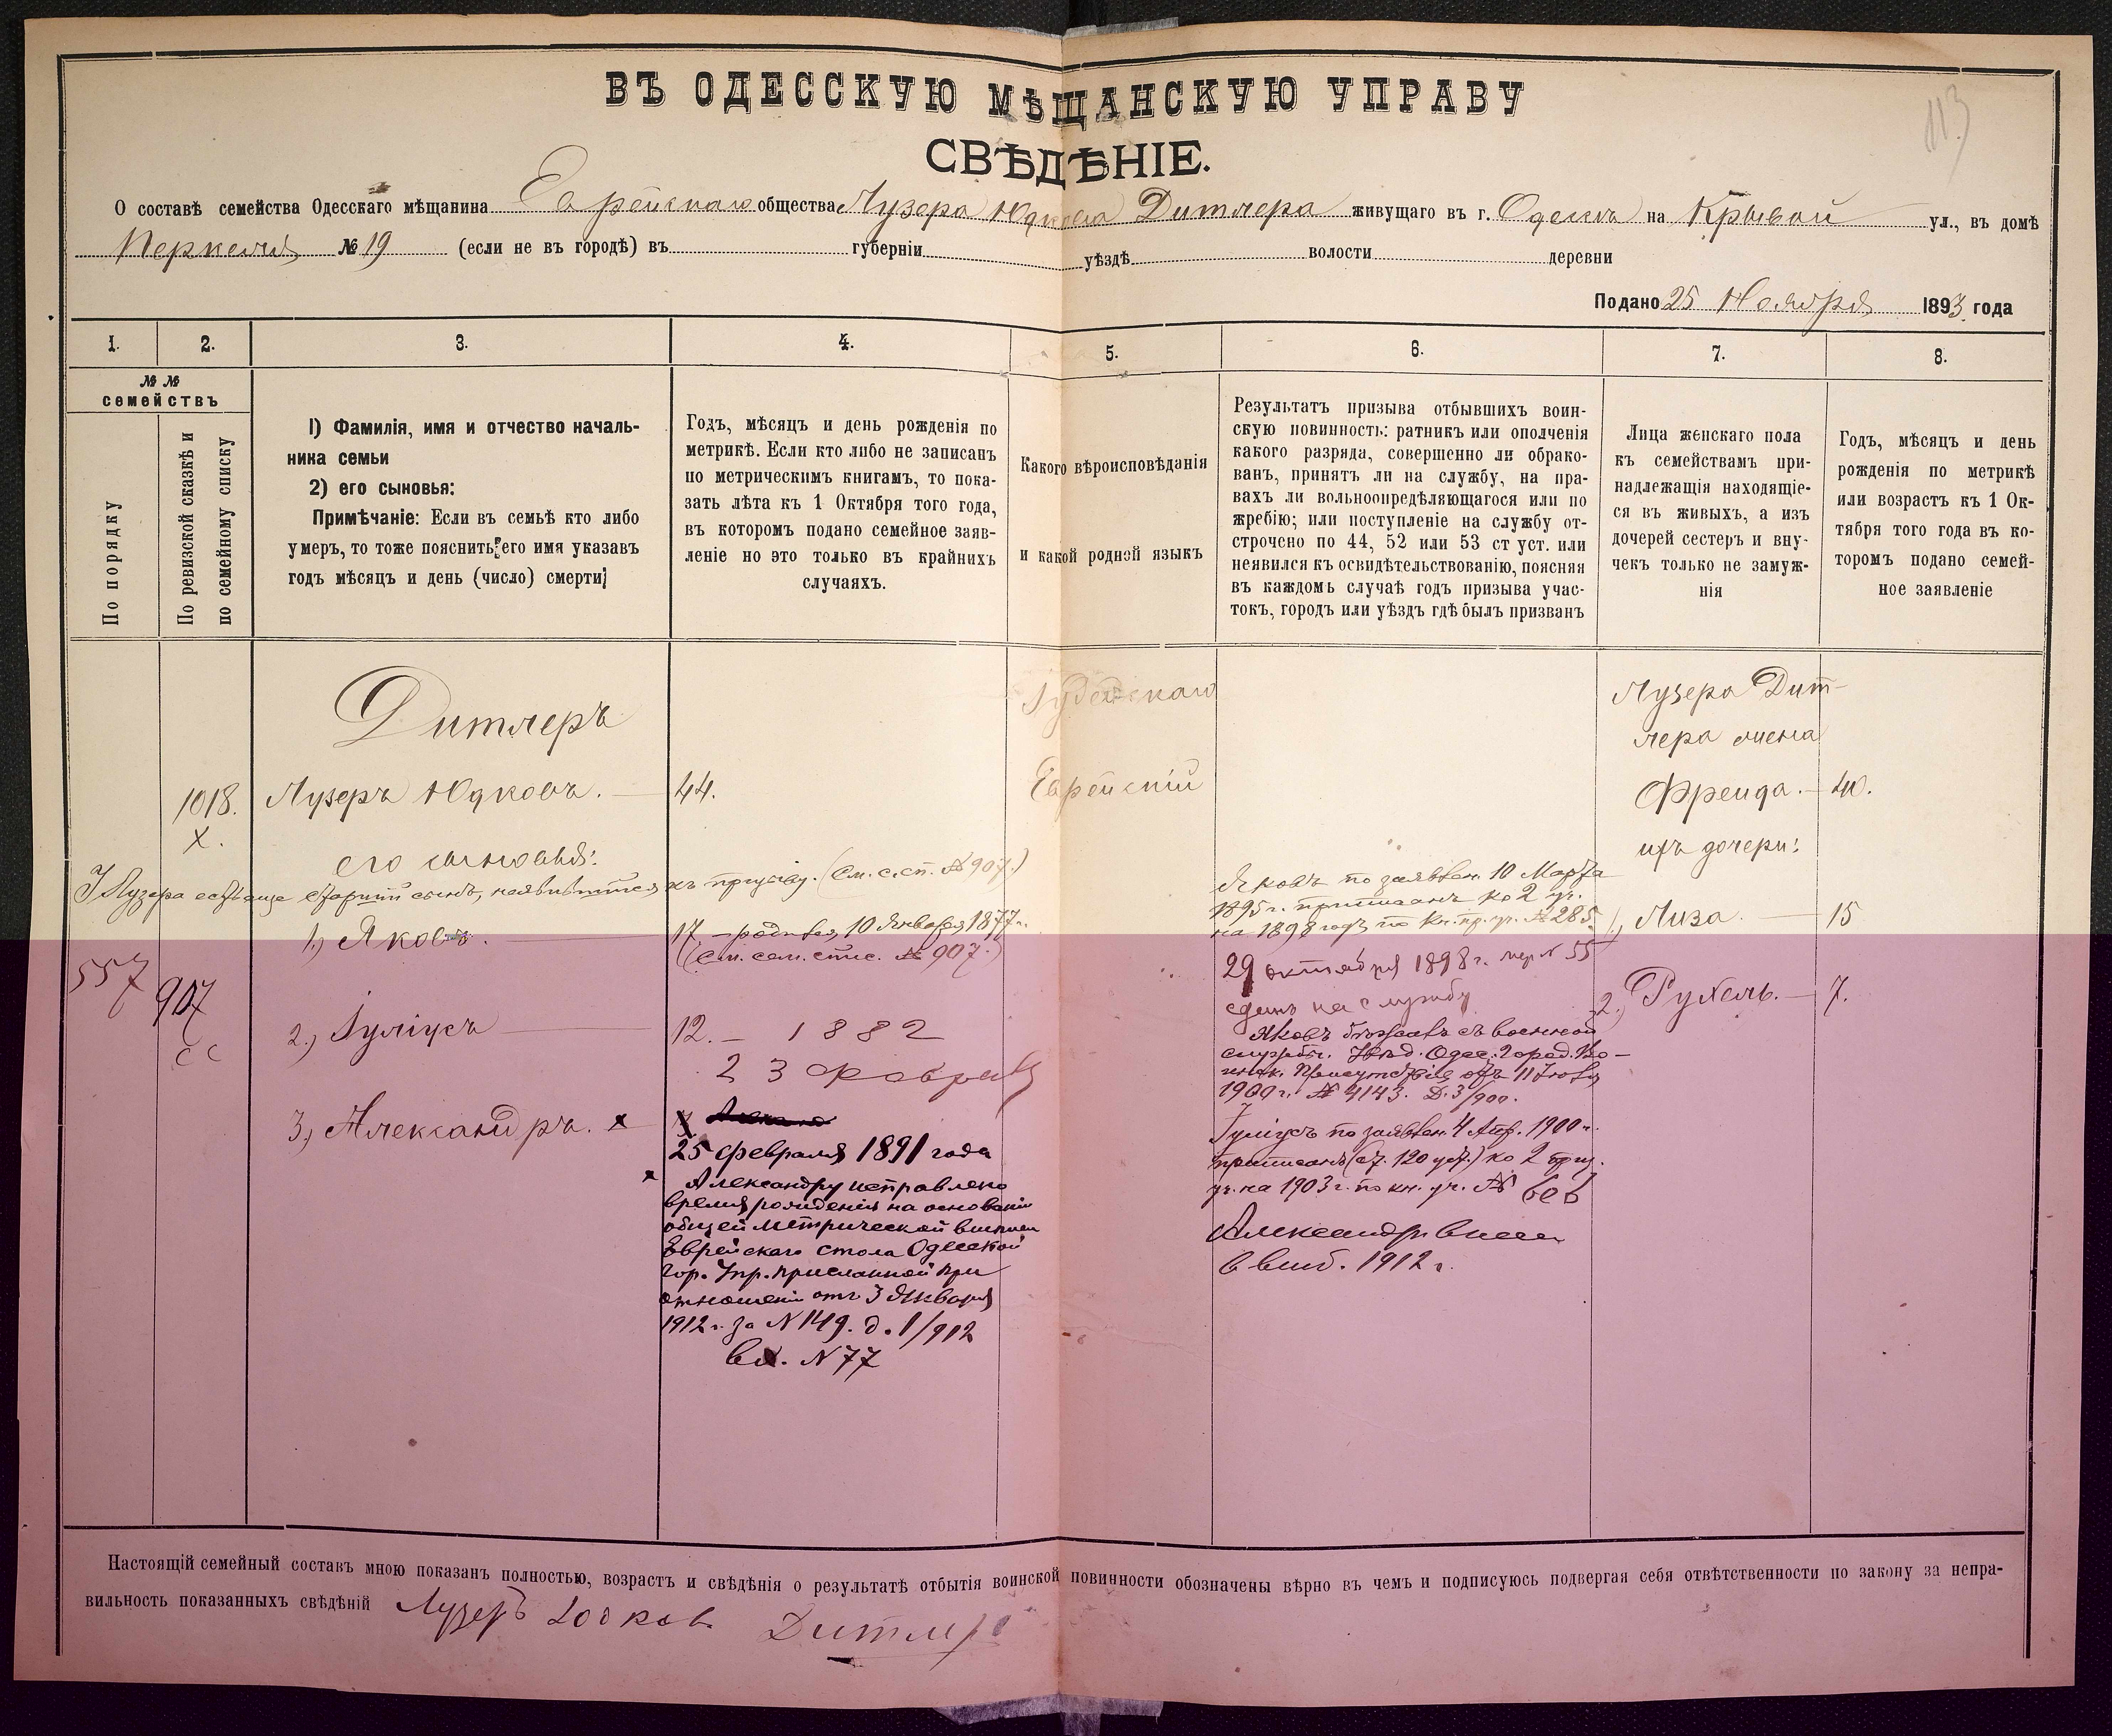 113
ВЪ ОДЕССКУЮ МѢЩАНСКУЮ УПРАВУ
СВѢДѢНІЕ.
О составѣ семейства Одесскаго мѣщанина Еврейскаго общества Лузера Юдкова Дитлера живущаго въ г. Одессѣ на Кривой ул., въ домѣ
№ 19 (если не въ городѣ) въ губерніи уѣздѣ волости деревни
Подано 25 Ноября 1893 года
1. 2. 3. 4. 5. 6. 7. 8.
№ № семействъ
По порядку
По ревизской сказкѣ и
по семейному списку
1) Фамилія, имя и отчество началь-
ника семьи
2) его сыновья:
Примѣчаніе: Если въ семьѣ кто либо
умеръ, то тоже пояснить его имя указавъ
годъ мѣсяцъ и день (число) смерти;
Годъ, мѣсяцъ и день рожденія по
метрикѣ. Если кто либо не записанъ
по метрическимъ книгамъ, то пока-
зать лѣта къ 1 Октября того года,
въ которомъ подано семейное заяв-
леніе но это только въ крайнихъ
случаяхъ.
Какого вѣроисповѣданія
и какой родной языкъ
Результатъ призыва отбывшихъ воин-
скую повинность: ратникъ или ополченія
какого разряда, совершенно ли обрако-
ванъ, принятъ ли на службу, на пра-
вахъ ли вольноопредѣляющагося или по
жребію; или поступленіе на службу от-
строчено по 44, 52 или 53 ст уст. или
неявился къ освидѣтельствованію, поясняя
въ каждомъ случаѣ годъ призыва учас-
токъ, городъ или уѣздъ гдѣ былъ призванъ
Лица женскаго пола
къ семействамъ при-
надлежащія находящіе-
ся въ живыхъ, а изъ
дочерей сестеръ и вну-
чекъ только не замуж-
нія
Годъ, мѣсяцъ и день
рожденія по метрикѣ
или возрастъ къ 1 Ок-
тября того года въ ко-
торомъ подано семей-
ное заявленіе
Дитлеръ
1018.
х.
Лузеръ Юдковъ.
его сыновья:
У Лузера есть еще старшій сынъ, неявившійся къ призыву. (См. с. сп. № 907.)
557
907
сс
1.) Яковъ.
2.) Іуліусъ
3.) Александръ. х
44.
17 – родился 10 Января 1877 г.
(см. сем. спис. № 907.)
12. – 1882
23 Февраля
25 февраля 1891 года
х Александру исправлено
время рожденія на основаніи
общей метрической выписи
Еврейскаго стола Одесской
Гор. Упр. присланной при
отношеніи отъ 3 Января
1912 г. за N 149. д. 1/912
вх. N 77
Іудейскаго
Еврейскій
Яковъ по заявлен. 10 Марта
1895 г. приписанъ ко 2 уч.
на 1898 годъ по кн. пр. уч. № 285.
29 октября 1898 г. жер N 55
сданъ на службу
Яковъ бѣжалъ съ военной
службы. Увѣд. Одес. Город. Во-
инск. Присутствія отъ 11 Іюля
1900 г. № 4143. Д. 3/900.
Іуліусъ по заявлен. 4 Апр. 1900 г.
приписанъ (ст. 120 уст.) ко 2 приз.
уч. на 1903 г. по кн. уч. №
Александръ внесен
1912 г.
Лузера Дит-
лера жена
Фрейда. – 40.
ихъ дочери:
1.) Лиза. – 15
2.) Рухель. – 7.
Настоящій семейный составъ мною показанъ полностью, возрастъ и свѣдѣнія о результатѣ отбытія воинской повинности обозначены вѣрно въ чемъ и подписуюсь подвергая себя отвѣтственности по закону за непра-
вильность показанныхъ свѣдѣній Лузеръ Юдков Дитлер